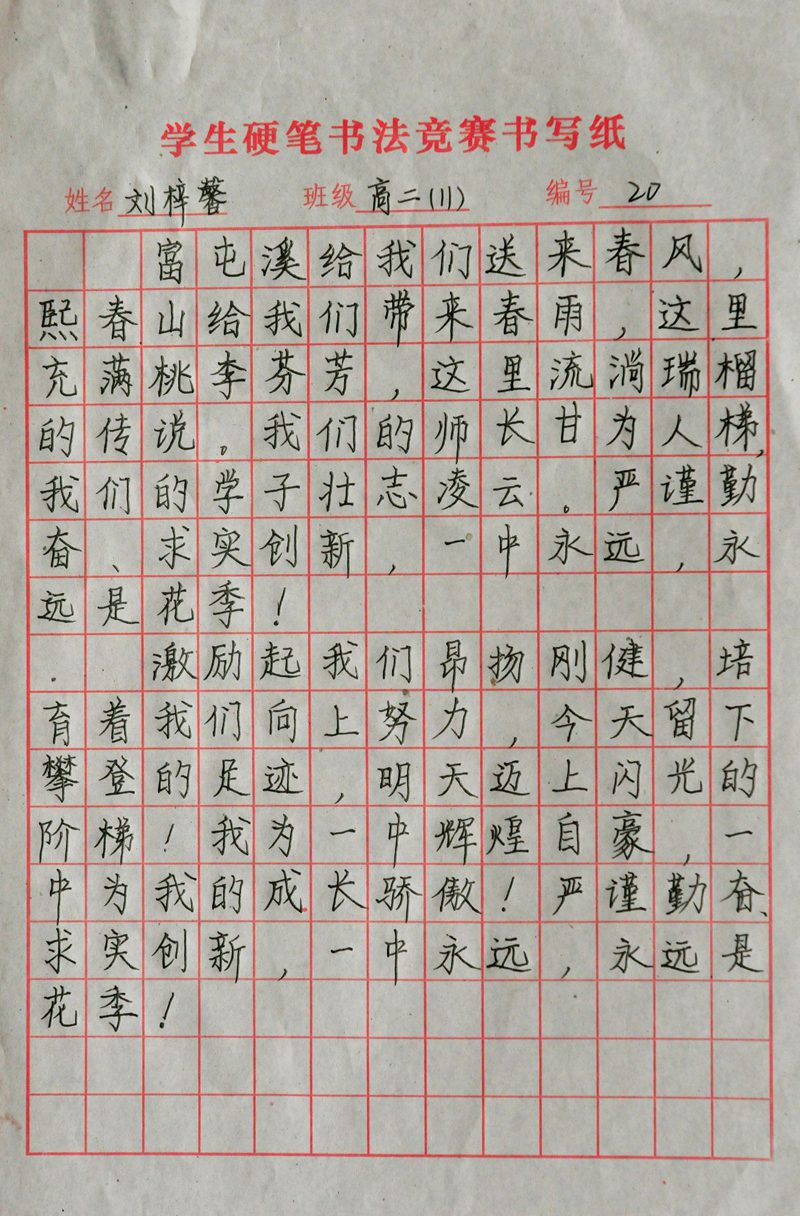 学生硬笔书法竞赛书写纸
姓名 刘梓馨 班级 高二(11) 编号 20
富屯溪给我们送来春风，
熙春山给我们带来春雨，这里
充满桃李芬芳，这里流淌瑞榴
的传说。我们的师长甘为人梯，
我们的学子壮志凌云。严谨勤
奋、求实创新，一中永远，永
远是花季！
激励起我们昂扬刚健，培
育着我们向上努力，今天留下
攀登的足迹，明天迈上闪光的
阶梯！我为一中辉煌自豪，一
中为我的成长骄傲！严谨勤奋、
求实创新，一中永远，永远是
花季！